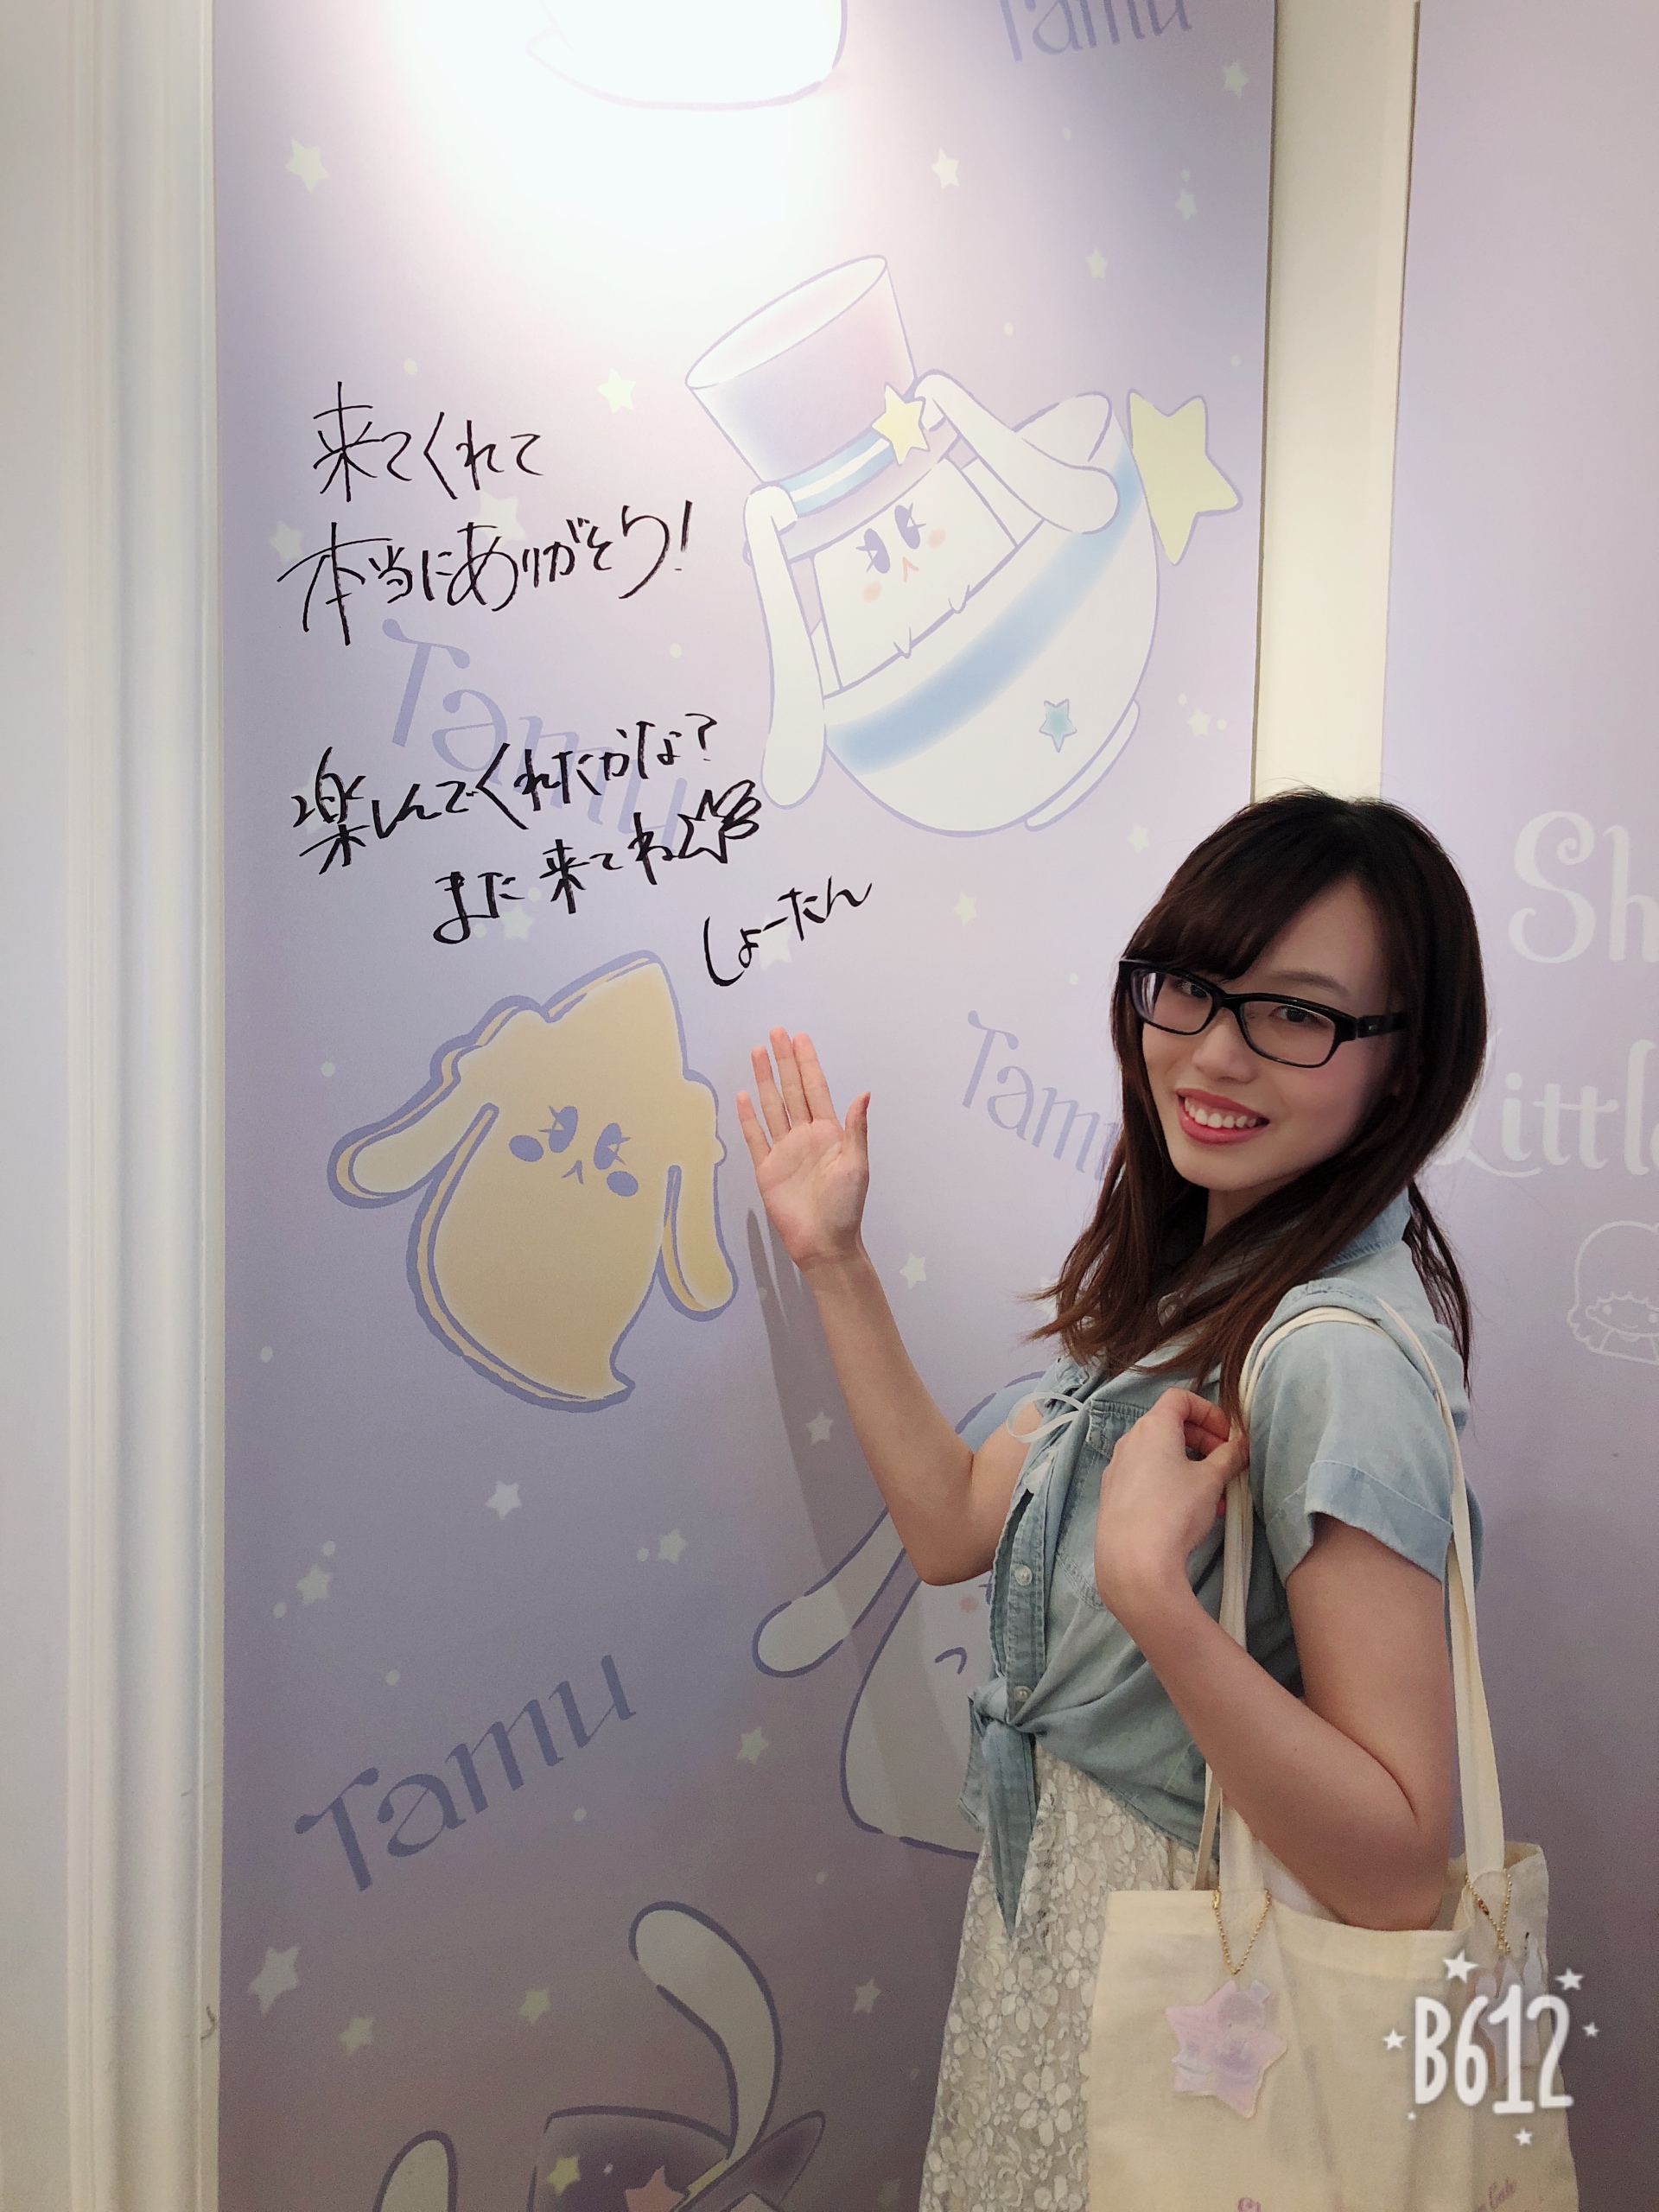 Tamu
来てくれて
本当にありがとう!
Tamu
楽しんでくれたかな?
また来てね
しょーたん
Sh
Tamu
Little
Tamu
B612